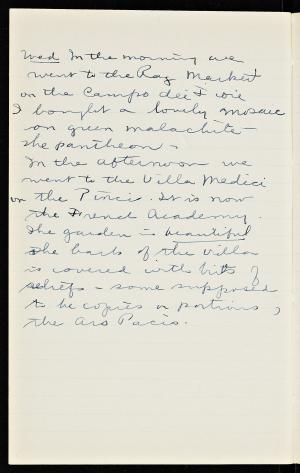 Wed In the morning we
went to the Rag Market
on the Campo dei Fiori
I bought a lovely mosaic
on green malachite -
the pantheon.
In the afternoon we
went to the Villa Medici
on the Pinci. It is now
the French Academy.
The garden is beautiful
The back of the villa
is covered with bits of
reliefs - some supposed
to be copies or portions of
the Ara Pacis.